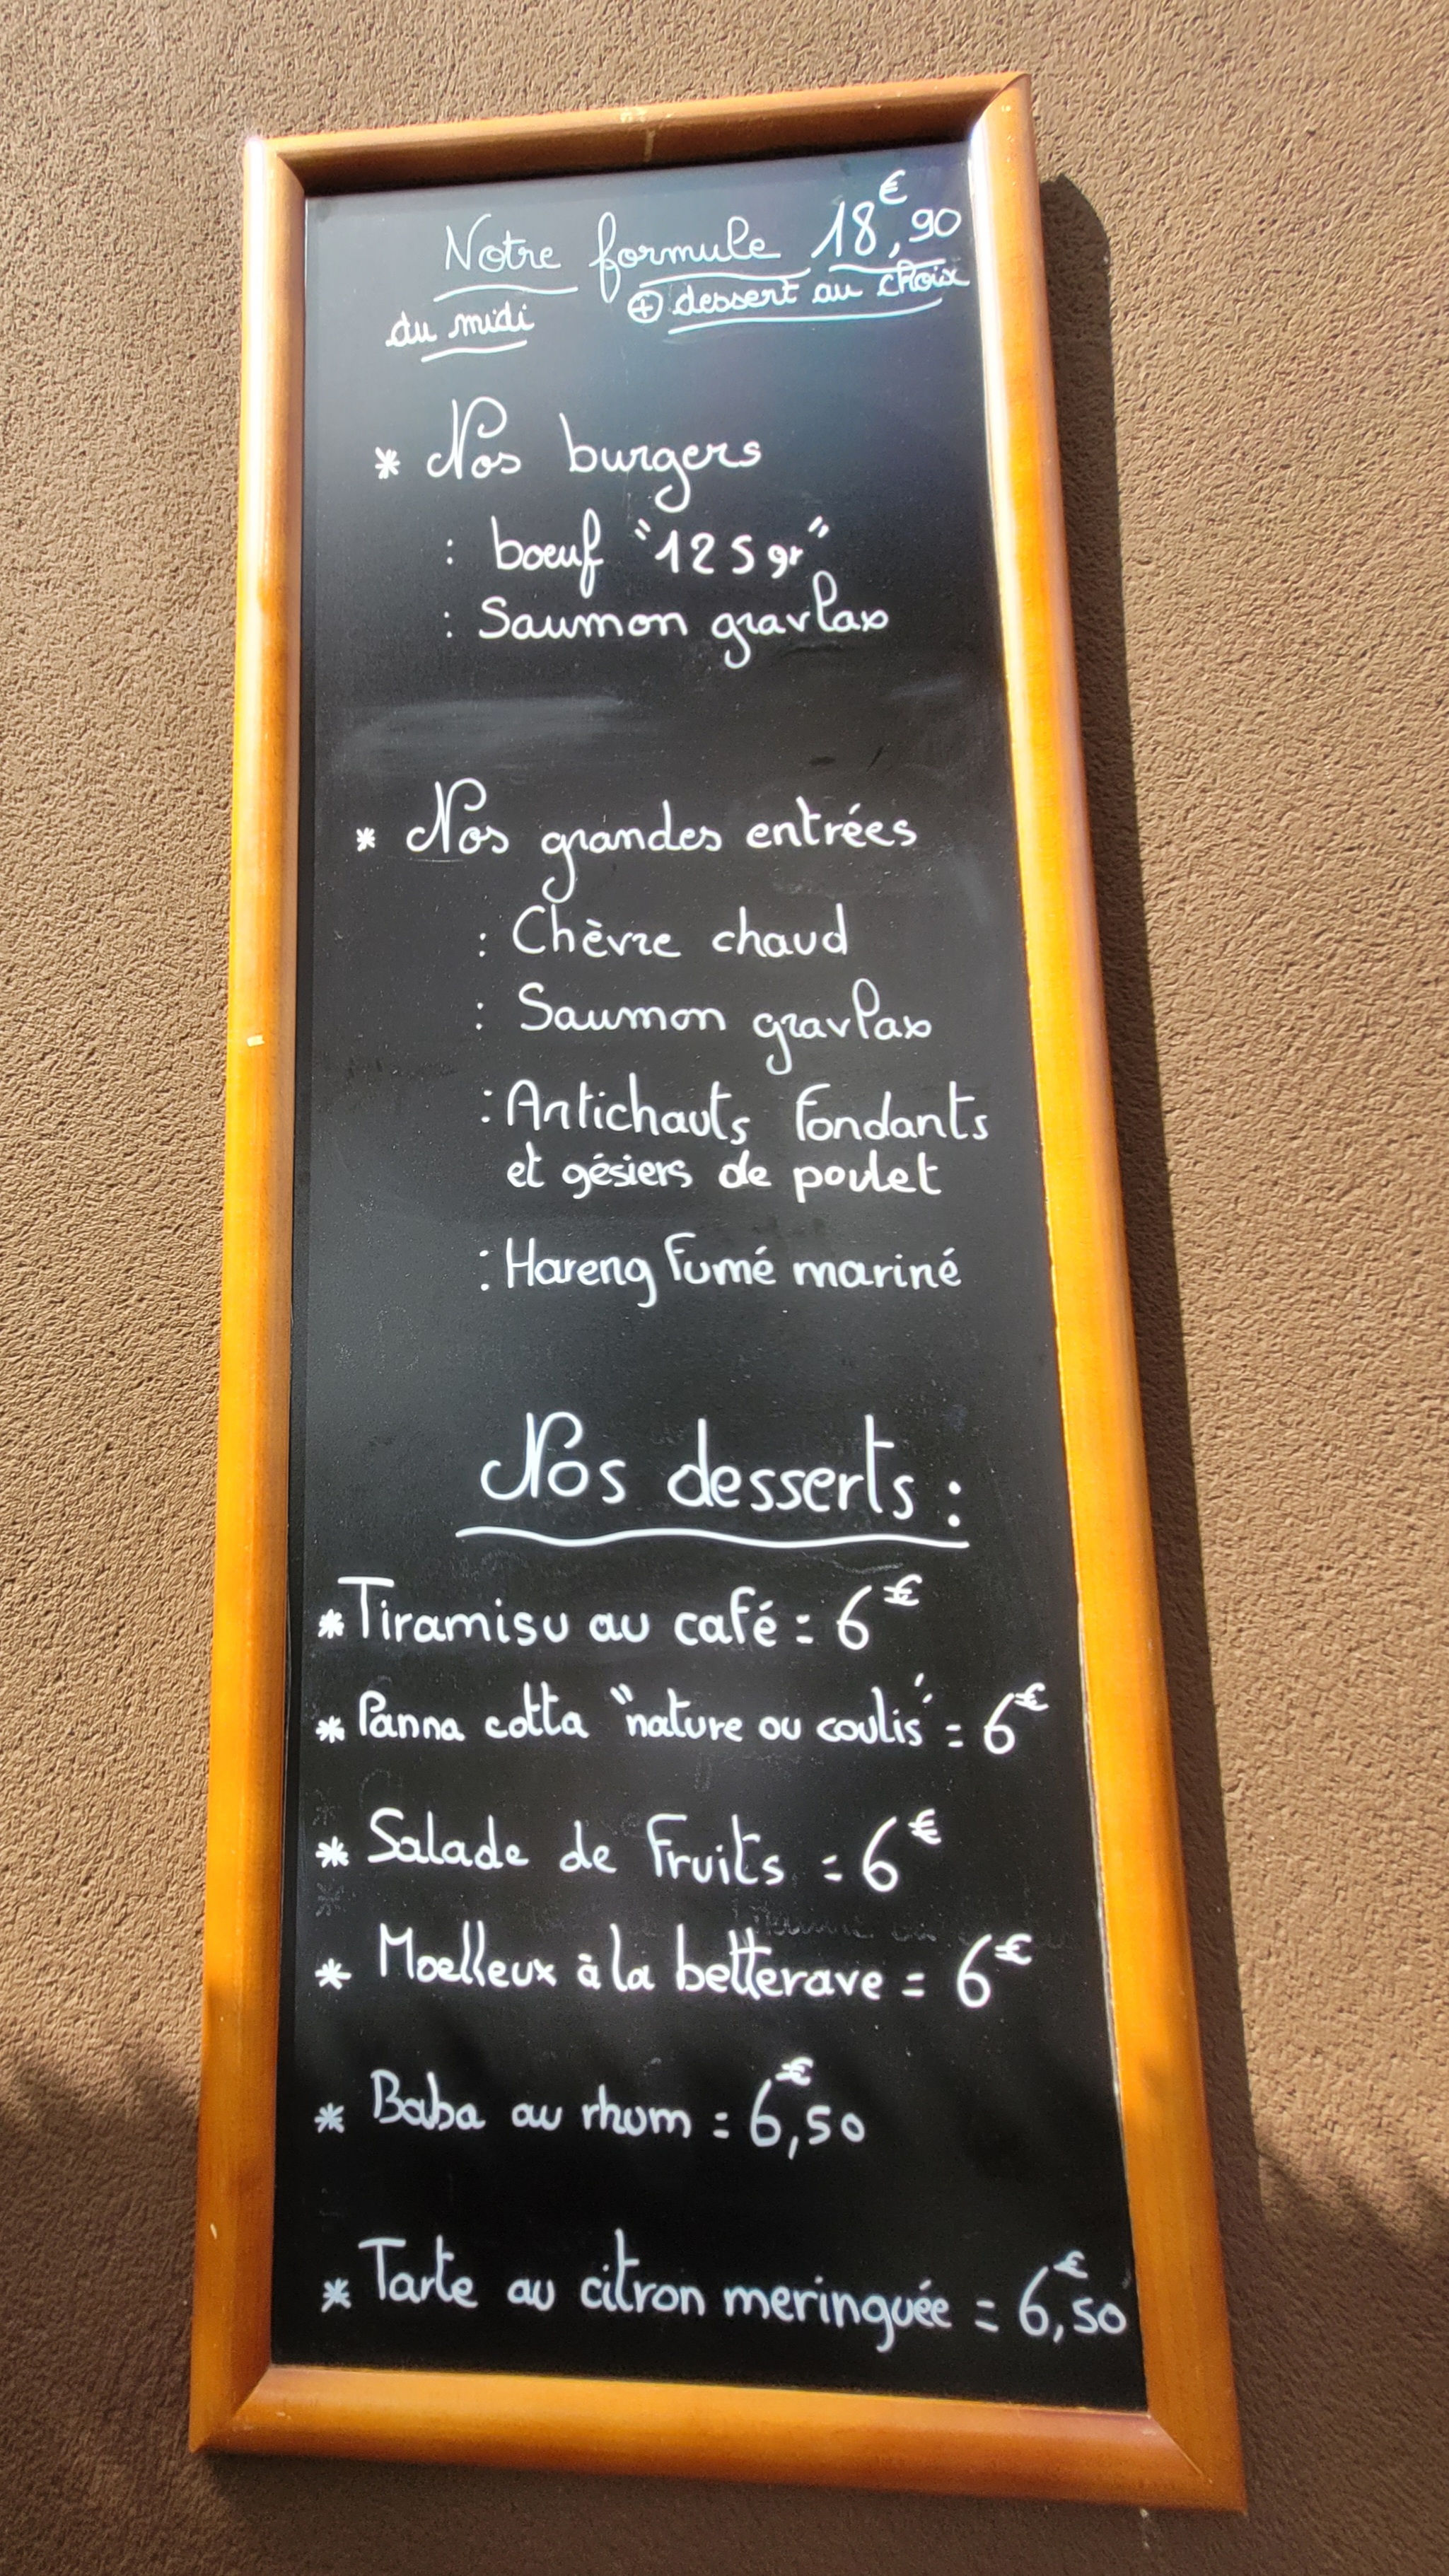 Notre formule 18€,90
du midi ⊕ dessert au choix
* Nos burgers
: boeuf "125gr"
: Saumon gravlax
* Nos grandes entrées
: Chèvre chaud
: Saumon gravlax
: Artichauts fondants
et gésiers de poulet
: Hareng fumé mariné
Nos desserts :
* Tiramisu au café = 6€
* Panna cotta "nature ou coulis" = 6€
* Salade de Fruits = 6€
* Moelleux à la betterave = 6€
* Baba au rhum = 6€,50
* Tarte au citron meringuée = 6€,50